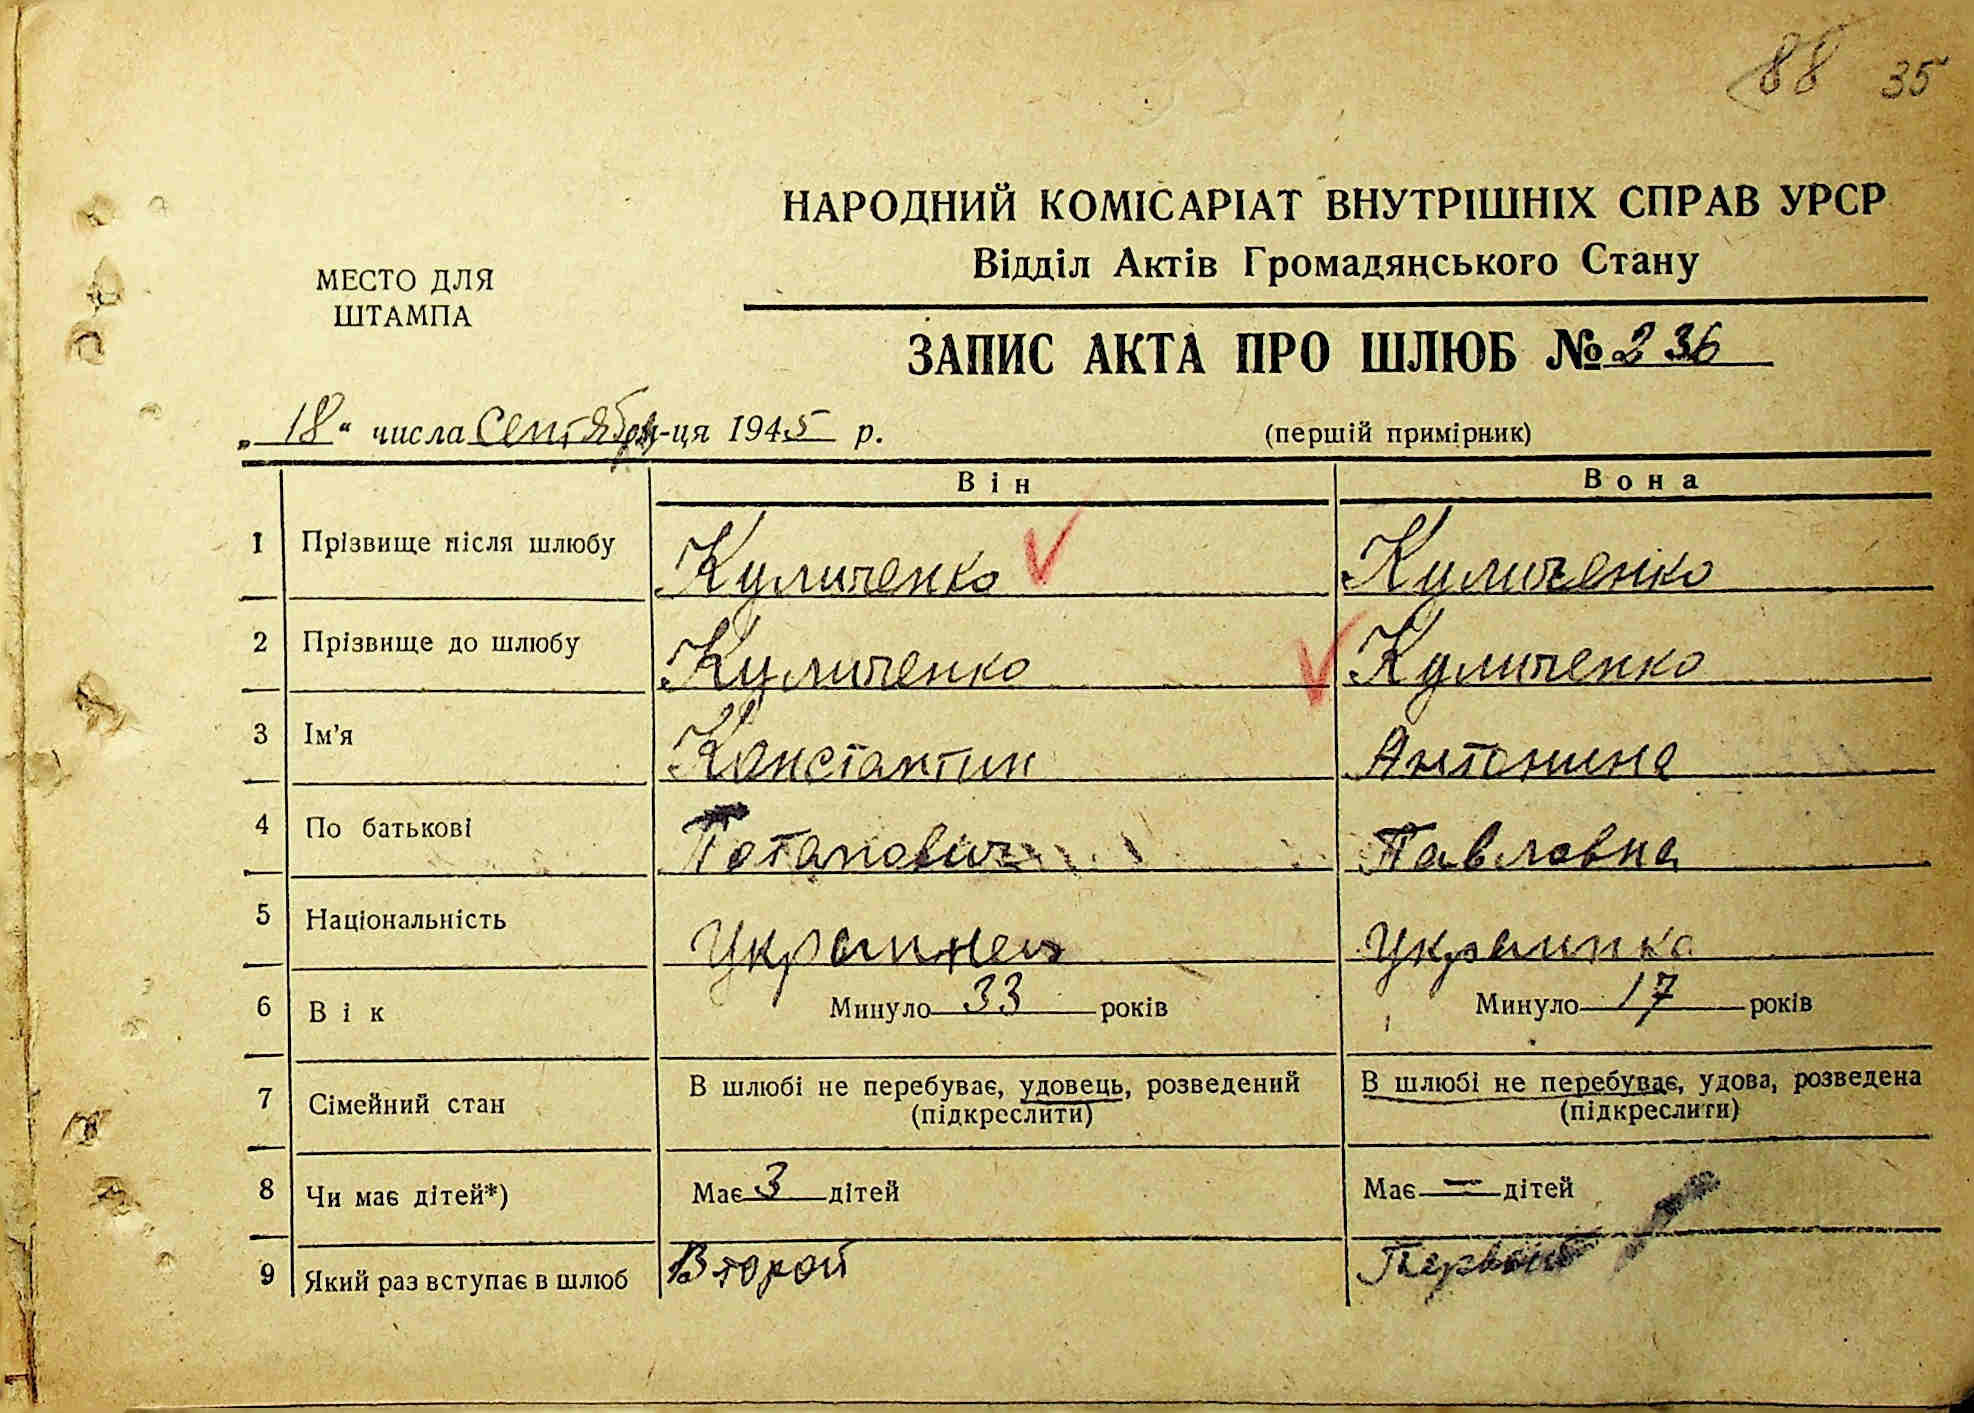 88 35
НАРОДНИЙ КОМІСАРІАТ ВНУТРІШНІХ СПРАВ УРСР
Відділ Актів Громадянського Стану
МЕСТО ДЛЯ
ШТАМПА
ЗАПИС АКТА ПРО ШЛЮБ № 236
„18“ числа Сентября-ця 1945 р. (першій примірник)
Він Вона
1 Прізвище після шлюбу Куличенко Куличенко
2 Прізвище до шлюбу Куличенко Куличенко
3 Ім’я Константин Антонина
4 По батькові Потапович Павловна
5 Національність Украинец Украинка
6 Вік Минуло 33 років Минуло 17 років
7 Сімейний стан В шлюбі не перебуває, удовець, розведений В шлюбі не перебуває, удова, розведена
(підкреслити) (підкреслити)
8 Чи має дітей*) Має 3 дітей Має — дітей
9 Який раз вступає в шлюб Второй Первый